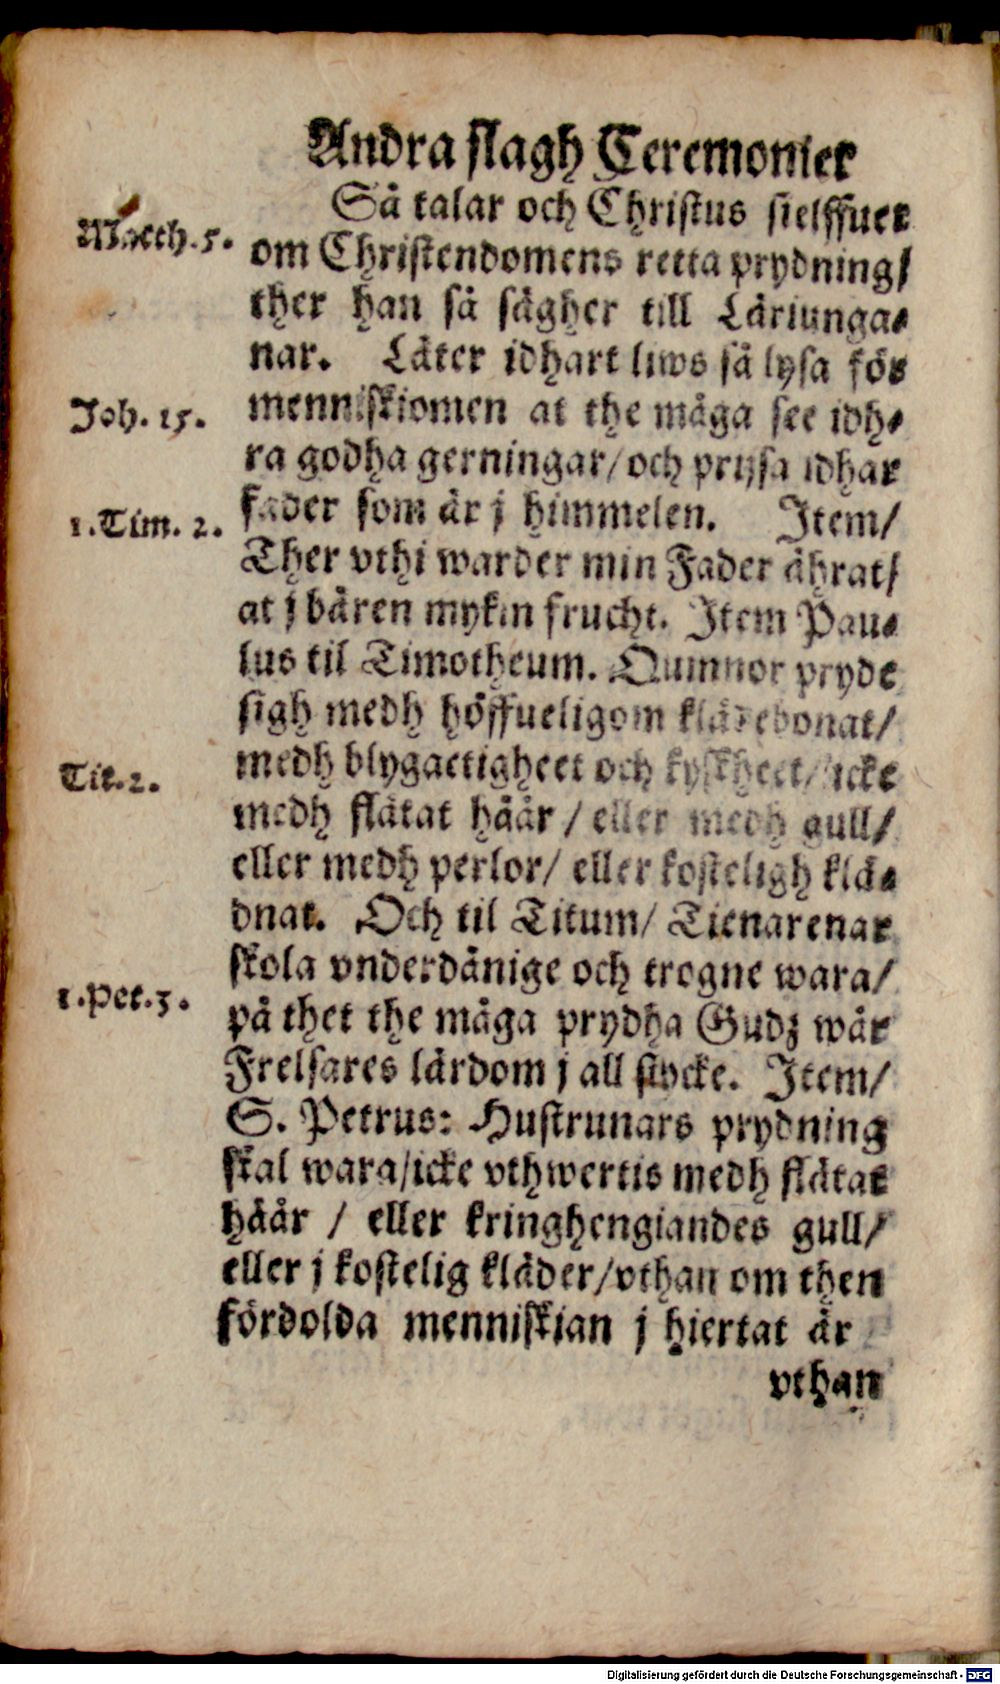 Andra slagh Ceremonier
Så talar och Christus sielffuer
Matth. 5.
om Christendomens retta prydning/
ther han så sägher till Läriunga-
nar. Låter idhart liws så lysa för
Joh. 15.
menniskiomen at the måga see idh-
ra godha gerningar/ och prijsa idhar
fader som är j himmelen. Item/
1. Tim. 2.
Ther vthi warder min Fader ährat/
at j bären mykin frucht. Item Pau-
lus til Timotheum. Quinnor pryde
sigh medh höffueligom klädebonat/
medh blygactigheet och kyskheet/ icke
Tit. 2.
medh flätat håår / eller medh gull/
eller medh perlor/ eller kosteligh klä-
dnat. Och til Titum/ Tienarenar
skola vnderdånige och trogne wara/
1. Pet. 3.
på thet the måga prydha Gudz wår
Frelsares lärdom j all stycke. Item/
S. Petrus: Hustrunars prydning
skal wara/ icke vthwertis medh flätat
håår / eller kringhengiandes gull/
eller j kostelig kläder/ vthan om then
fördolda menniskian j hiertat är
vthan
Digitalisierung gefördert durch die Deutsche Forschungsgemeinschaft - DFG